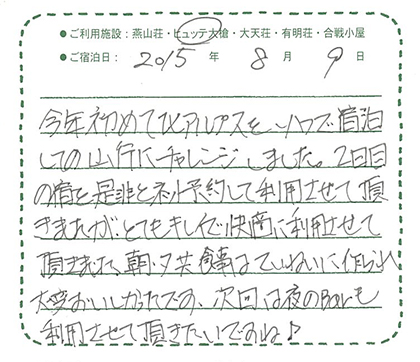 ●ご利用施設：燕山荘・ヒュッテ大槍・大天荘・有明荘・合戦小屋
●ご宿泊日：2015年8月9日
今年初めて北アルプスをソロで宿泊
しての山行にチャレンジしました。2日目
の宿を是非とネット予約して利用させて頂
きましたが、とてもキレイで快適に利用させて
頂きました。朝・夕共食事はていねいに作られ
大変おいしかったです。次回は夜のBarも
利用させて頂きたいですね♪